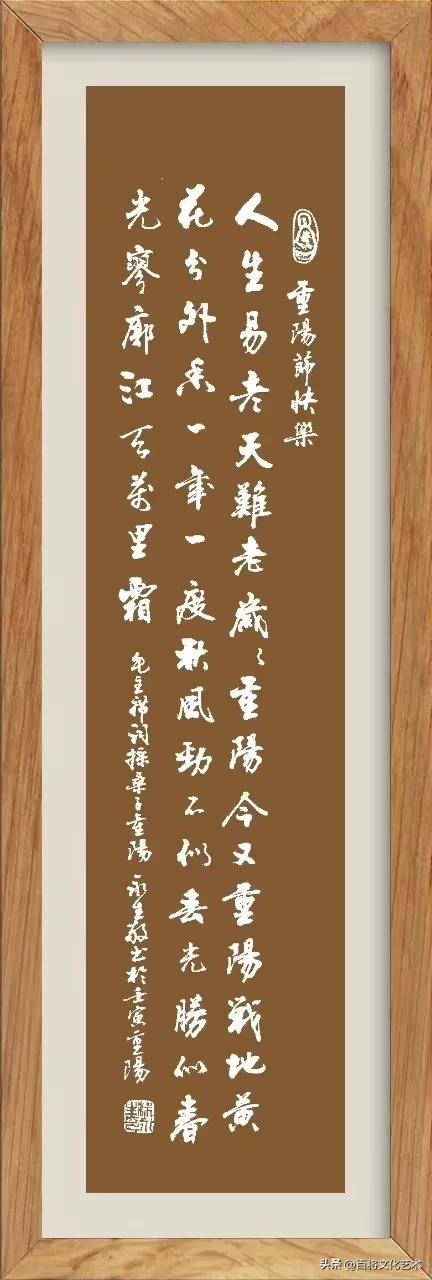 重陽節快樂
人生易老天難老歲々重陽今又重陽戰地黃
花分外香一年一度秋風勁不似春光勝似春
光寥廓江天萬里霜
毛主席詞採桑子重陽 永生敬书於壬寅重陽
头条@百将文化艺术